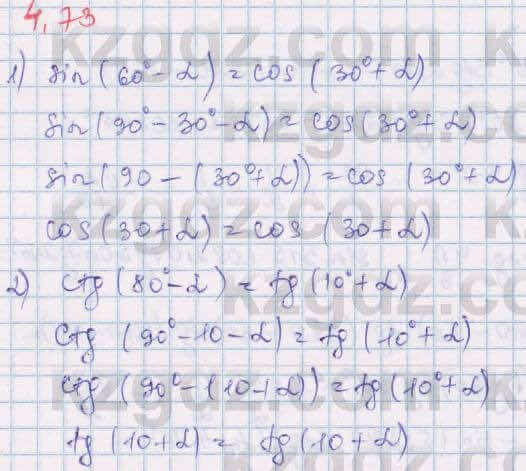 4.73
1) sin(60°-α)=cos(30°+α)
sin(90°-30°-α)=cos(30°+α)
sin(90-(30°+α))=cos(30°+α)
cos(30+α)=cos(30+α)
2) ctg(80°-α)=tg(10°+α)
ctg(90°-10-α)=tg(10°+α)
ctg(90°-(10+α))=tg(10°+α)
tg(10+α)=tg(10+α)